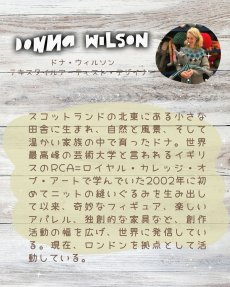 DONNA WILSON
ドナ・ウィルソン
テキスタイルアーティスト・デザイナー
スコットランドの北東にある小さな
田舎に生まれ、自然と風景、そして
温かい家族の中で育ったドナ。世界
最高峰の芸術大学と言われるイギリ
スのRCA=ロイヤル・カレッジ・オ
ブ・アートで学んでいた2002年に初
めてニットの縫いぐるみを生み出し
て以来、奇妙なフィギュア、楽しい
アパレル、独創的な家具など、創作
活動の幅を広げ、世界に発信してい
る。現在、ロンドンを拠点として活
動している。